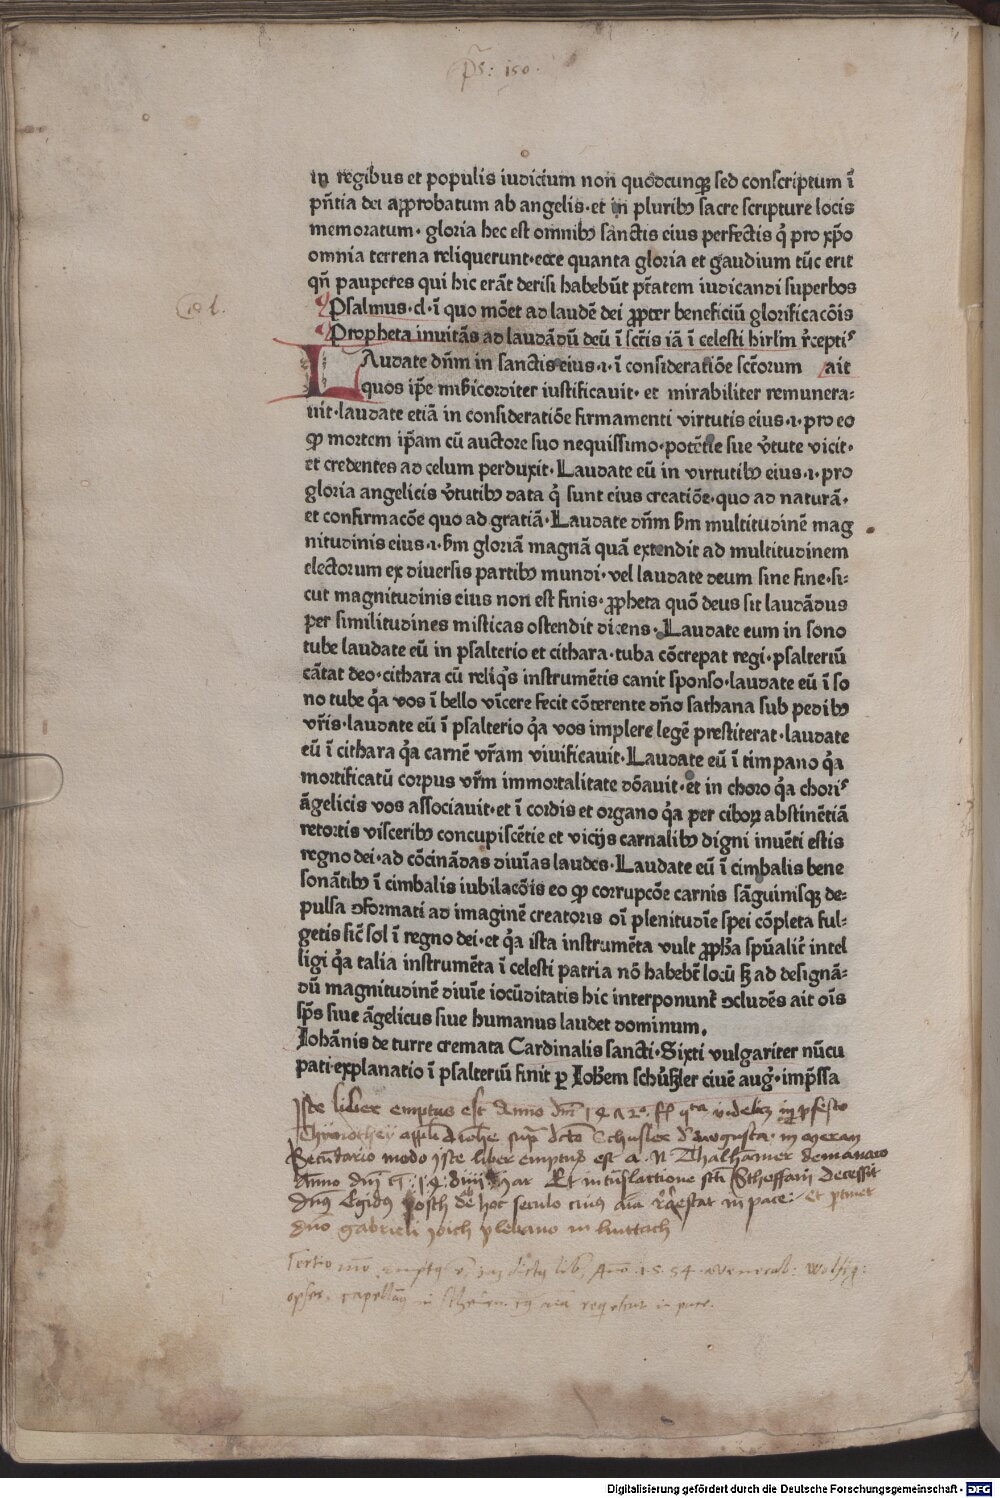 Ps: 150.
in regibus et populis iudicium non quodcunqꝫ sed conscriptum ī
pn̄tia dei aꝓprobatum ab angelis·et in pluribꝰ sacre scripture locis
memoratum· gloria hec est omnibꝰ sanctis eius perfectis q̇ pro xp̄o
omnia terrena reliquerunt·ecce quanta gloria et gaudium tūc erit
qn̄ pauperes qui hic erāt derisi habebūt pt̄atem iudicandi superbos
Psalmus·cl·ī quo mōet ad laudē dei ꝓpter beneficiū glorificacōis
cl.
Propheta inuitās ad laudādū deū ī sc̄tis iā ī celesti hirl̄m r̄cepti
LAudate dn̄m in sanctis eius·i·ī consideratiōe sc̄torum ait
quos ip̄e mi̅sicorditer iustificauit· et mirabiliter remunera-
uit·laudate etiā in consideratiōe firmamenti virtutis eius·i·pro eo
ꝙ mortem ip̄am cū auctore suo nequissimo·potētie sue v̄tute vicit·
et credentes ad celum perduxit·Laudate eū in virtutibꝰ eius·i·pro
gloria angelicis v̄tutibꝰ data q̇ sunt eius creatiōe·quo ad naturā·
et confirmacōe quo ad gratiā·Laudate dn̄m ẜm multitudinē mag
nitudinis eius·i·ẜm gloriā magnā quā extendit ad multitudinem
electorum ex diuersis partibꝰ mundi·vel laudate deum sine fine·si-
cut magnitudinis eius non est finis·ꝓpheta quō deus sit laudādus
per similitudines misticas ostendit dicens·Laudate eum in sono
tube laudate eū in psalterio et cithara·tuba cōcrepat regi·psalteriū
cātat deo·cithara cū reliq̇s instrumētis canit sponso·laudate eū ī so
no tube q̇a vos ī bello vīcere fecit cōterente dn̄o sathana sub pedibꝰ
vr̄is·laudate eū ī psalterio q̇a vos implere legē prestiterat·laudate
eū ī cithara q̇a carnē vr̄am viuificauit·Laudate eū ī timpano q̇a
mortificatū corpus vr̄m immortalitate dōauit·et in choro q̇a chori
āgelicis vos associauit·et ī cordis et organo q̇a per ciboꝝ abstinētiā
retortis visceribꝰ concupiscētie et vicijs carnalibꝰ digni inuēti estis
regno dei·ad cōcinādas diuīas laudes·Laudate eū ī cimbalis bene
sonātibꝰ ī cimbalis iubilacōis eo ꝙ corrupcōe carnis sāguinisqꝫ de-
pulsa ꝯformati ad imaginē creatoris oī plenitudīe spei cōpleta ful-
getis sic̄ sol ī regno dei·et q̇a ista instrumēta vult ꝓpħa spūalit̄ intel
ligi q̇a talia instrumēta ī celesti patria nō habebt̄ locū sꝫ ad designā-
dū magnitudinē diuīe iocūditatis hic interponunt̄ ꝯcludēs ait oīs
sp̄s siue āgelicus siue humanus laudet dominum.
Iohānis de turre cremata Cardinalis sancti·Sixti vulgariter nūcu
pati·explanatio ī psalteriū finit ꝑ Ioħem schüßler ciuē auḡ·imp̄ssa
Iste liber emptus est Anno dn̄i 1472
Schusler auguste
Secundario modo iste liber emptus est a N Thalhamer
Anno dn̄i Et in Steffani decessit
dn̄s Egidius hoc seculo cuius aīa in pace· Et
dn̄o gabrieli plebano in
Tertio Anō 1554
aīa in pace.
Digitalisierung gefördert durch die Deutsche Forschungsgemeinschaft - DFG